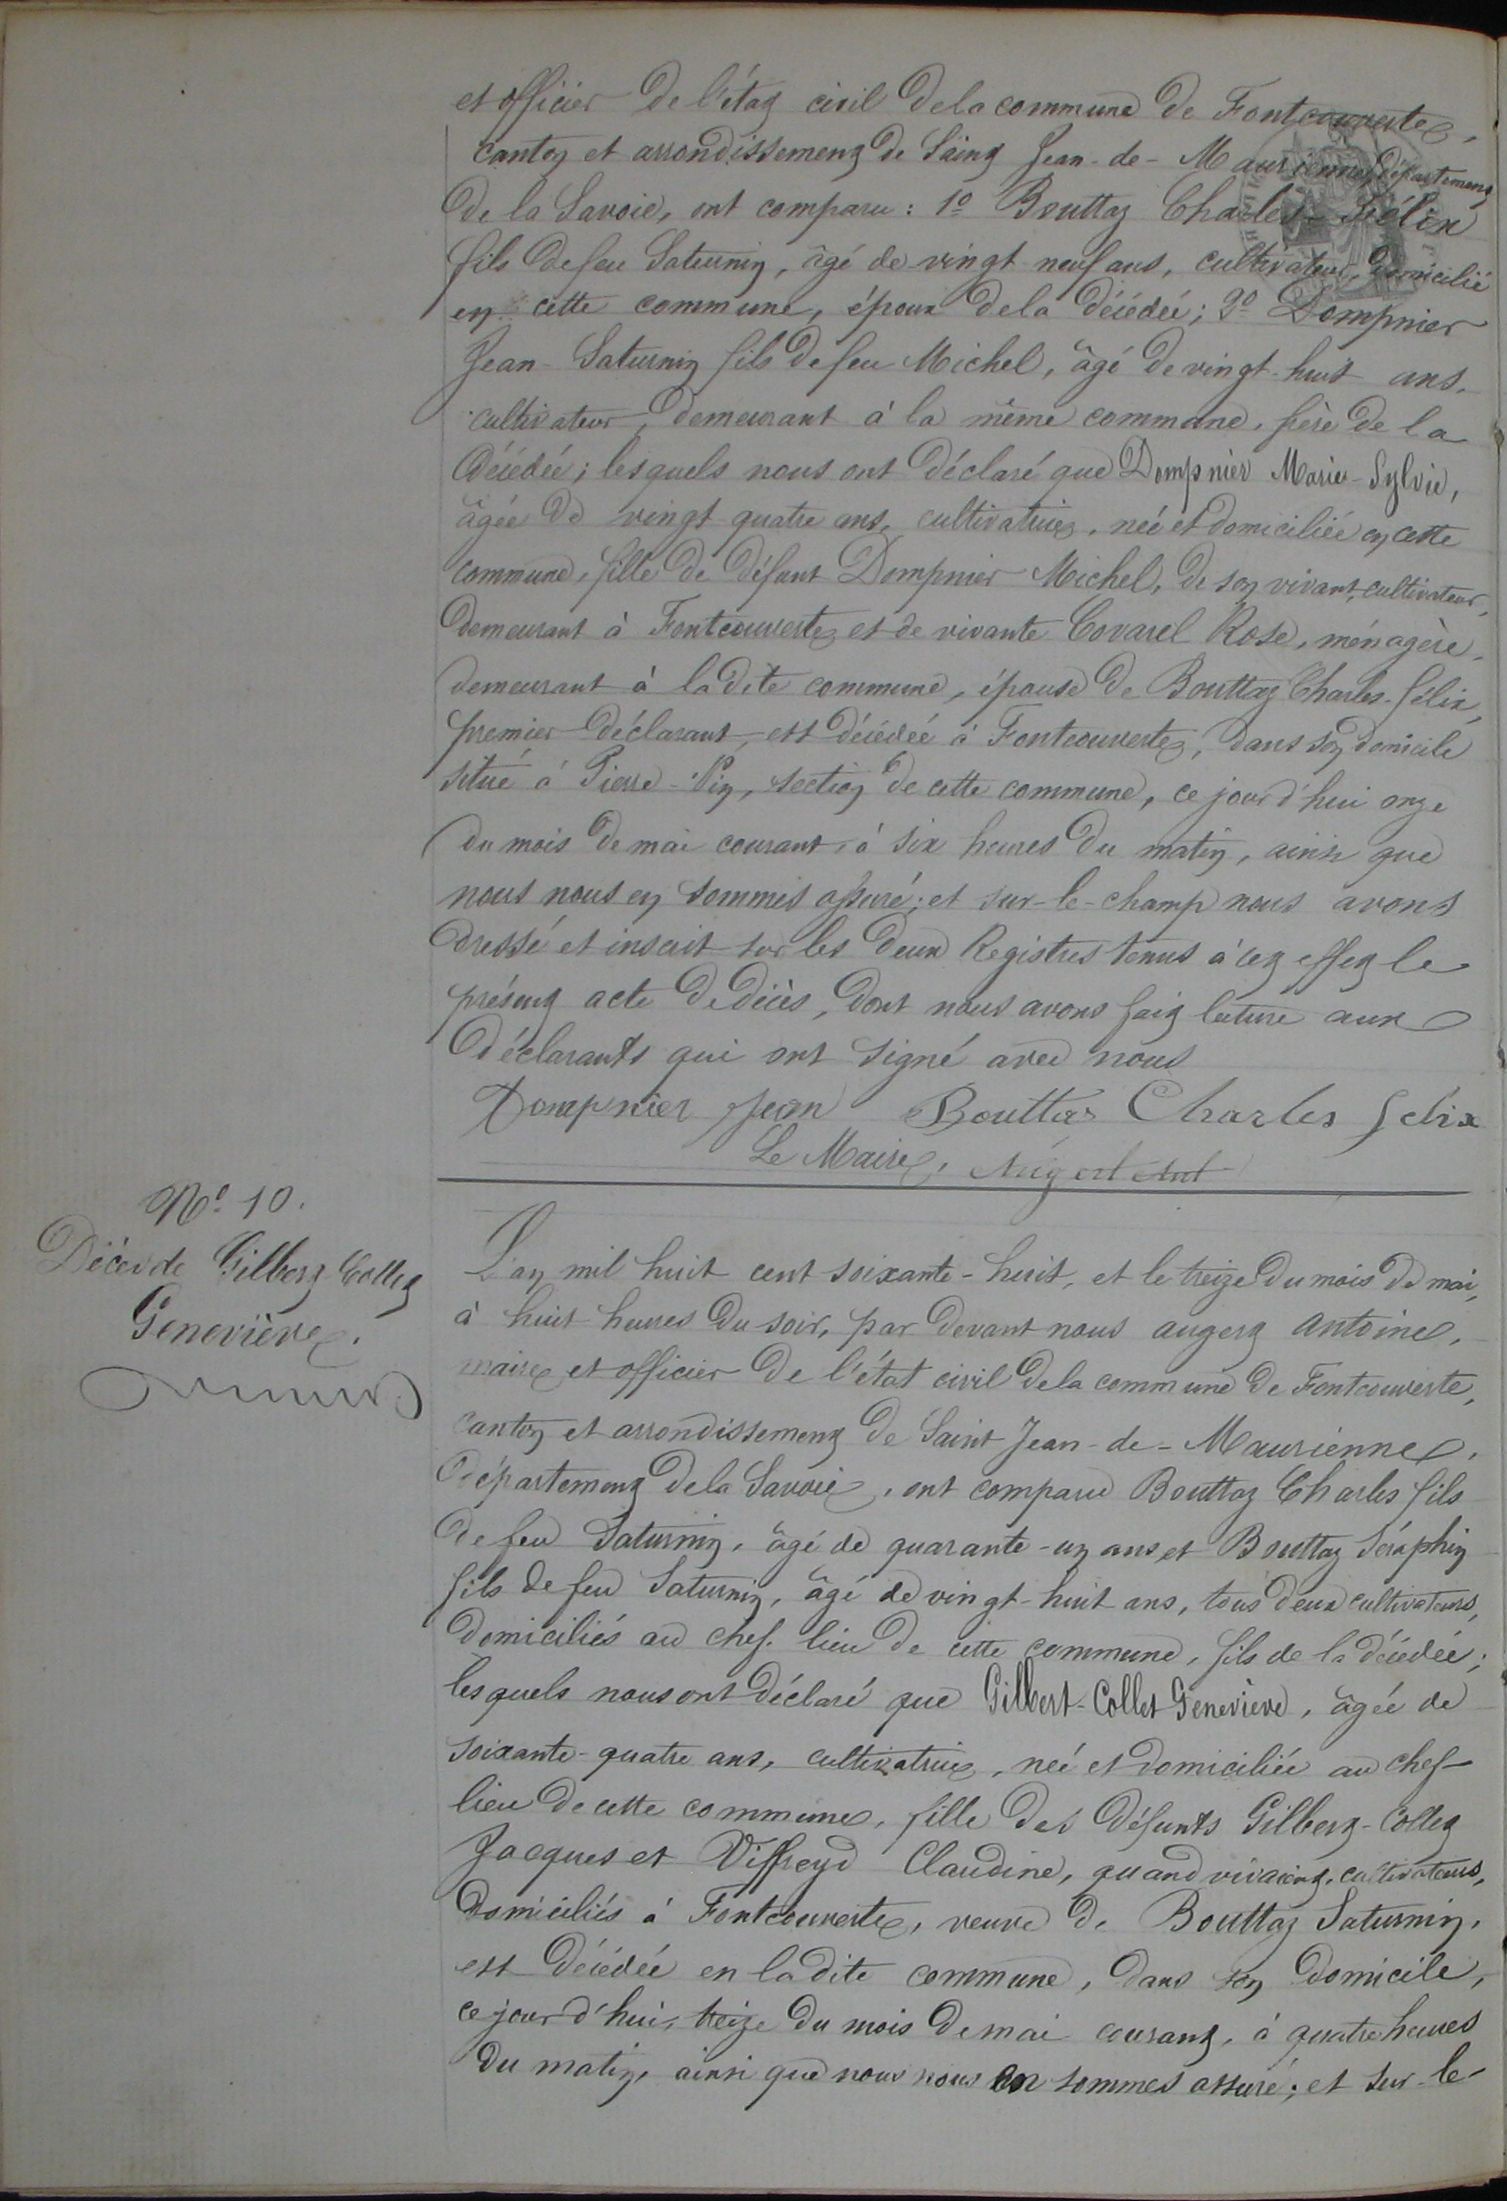 et officier de l'état civil de la commune de Fontcouverte,
canton et arrondissement de Saint Jean-de-Maurienne, département
de la Savoie, ont comparu : 1º Bouttaz Charles-Félix
fils de feu Saturnin, âgé de vingt neuf ans, cultivateur, domicilié
en cette commune, époux de la décédée; 2º Dompnier
Jean-Saturnin fils de feu Michel, âgé de vingt-huit ans,
cultivateur, demeurant à la même commune, frère de la
décédée; lesquels nous ont déclaré que Dompnier Marie-Sylvie,
âgée de vingt-quatre ans, cultivatrice, née et domiciliée en cette
commune, fille de défunt Dompnier Michel, de son vivant, cultivateur,
demeurant à Fontcouverte et de vivante Covarel Rose, ménagère,
demeurant à la dite commune, épouse de Bouttaz Charles-Félix,
premier déclarant, est décédée à Fontcouverte, dans son domicile
situé à Pierre-Pin, section de cette commune, ce jour d'hui onze
du mois de mai courant, à six heures du matin, ainsi que
nous nous en sommes assuré; et sur-le-champ nous avons
dressé et inscrit sur les deux Registres tenus à cet effet le
présent acte de décès, dont nous avons fait lecture aux
déclarants qui ont signé avec nous
Dompnier Jean Bouttaz Charles felix
Le Maire,
Nº 10.
Décès de Gilbert-Collet
Geneviève.
L'an mil huit cent soixante-huit, et le treize du mois de mai,
à huit heures du soir, par devant nous augert antoine,
maire et officier de l'état civil de la commune de Fontcouverte,
canton et arrondissement de Saint Jean-de-Maurienne,
département de la Savoie, ont comparu Bouttaz Charles fils
de feu Saturnin, âgé de quarante-un ans et Bouttaz Séraphin
fils de feu Saturnin, âgé de vingt-huit ans, tous deux cultivateurs,
domiciliés au chef-lieu de cette commune, fils de la décédée;
lesquels nous ont déclaré que Gilbert-Collet Geneviève, âgée de
soixante-quatre ans, cultivatrice, née et domiciliée au chef-
lieu de cette commune, fille des défunts Gilbert-Collet
Jacques et Viffreyd Claudine, quand vivaient, cultivateurs,
domiciliés à Fontcouverte, veuve de Bouttaz Saturnin,
est décédée en la dite commune, dans son domicile,
ce jour d'hui, treize du mois de mai courant, à quatre heures
du matin, ainsi que nous nous en sommes assuré; et sur-le-